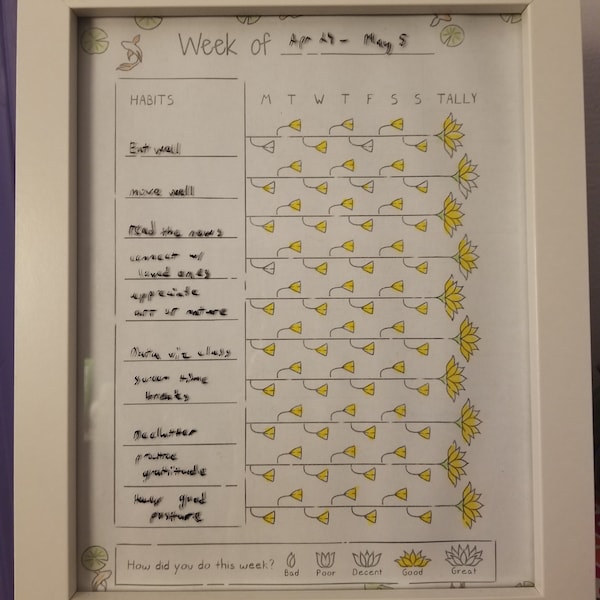 Week of Apr 29 - May 5
HABITS M T W T F S S TALLY
Eat well
move well
Read the news
connect w/
loved ones
appreciate
art or nature
Data viz class
screen time
breaks
Declutter
practice
gratitude
Keep good
posture
How did you do this week? Bad Poor Decent Good Great